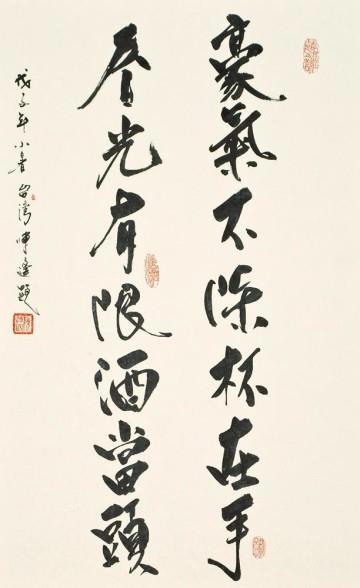 豪氣不除杯在手
春光有限酒當頭
戊子年小春 台灣 題